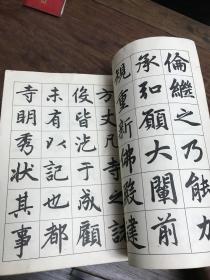 倫繼之乃能力
承和願大闡前
規重新佛殿建
方丈凡寺之
俊皆沚于成顧
未有以記也都
寺明秀狀其事